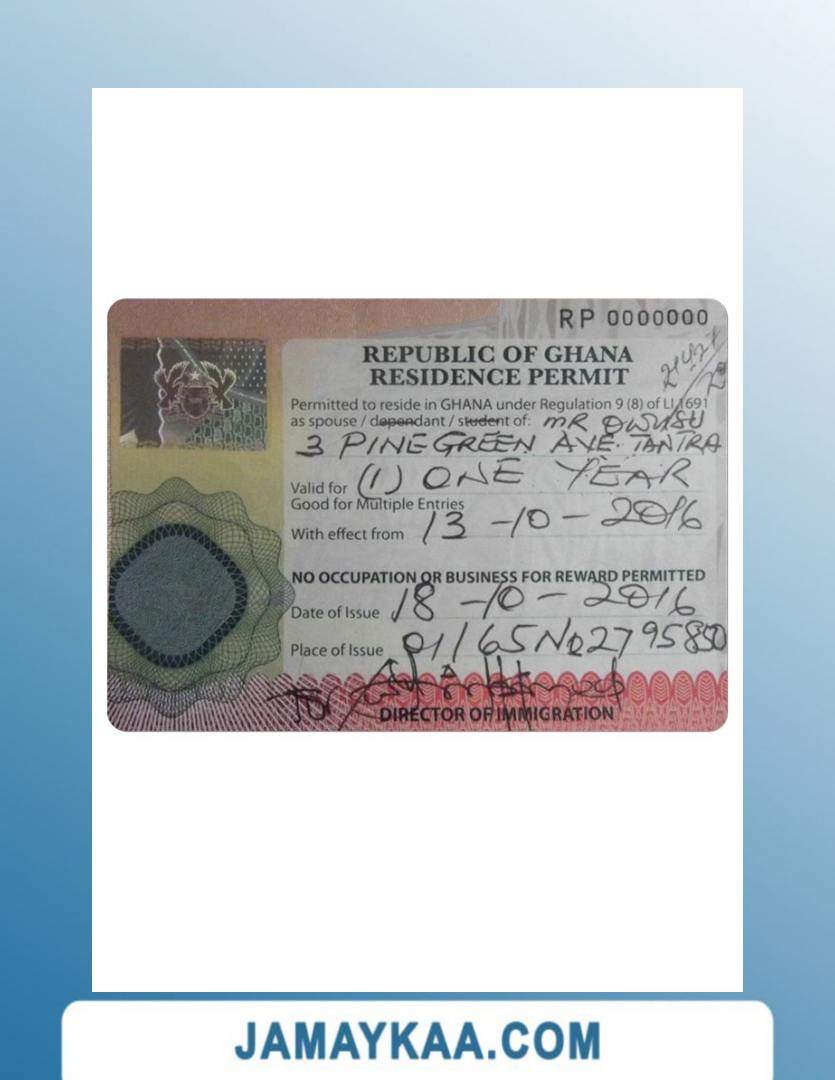 RP 0000000
REPUBLIC OF GHANA
RESIDENCE PERMIT
Permitted to reside in GHANA under Regulation 9 (8) of LI 1691
as spouse / dependant / student of: MR OWUSU
3 PINE GREEN AVE. TANTRA
Valid for (1) ONE YEAR
Good for Multiple Entries
With effect from 13-10-2016
NO OCCUPATION OR BUSINESS FOR REWARD PERMITTED
Date of Issue 18-10-2016
Place of Issue 01/65No2795850
DIRECTOR OF IMMIGRATION
JAMAYKAA.COM